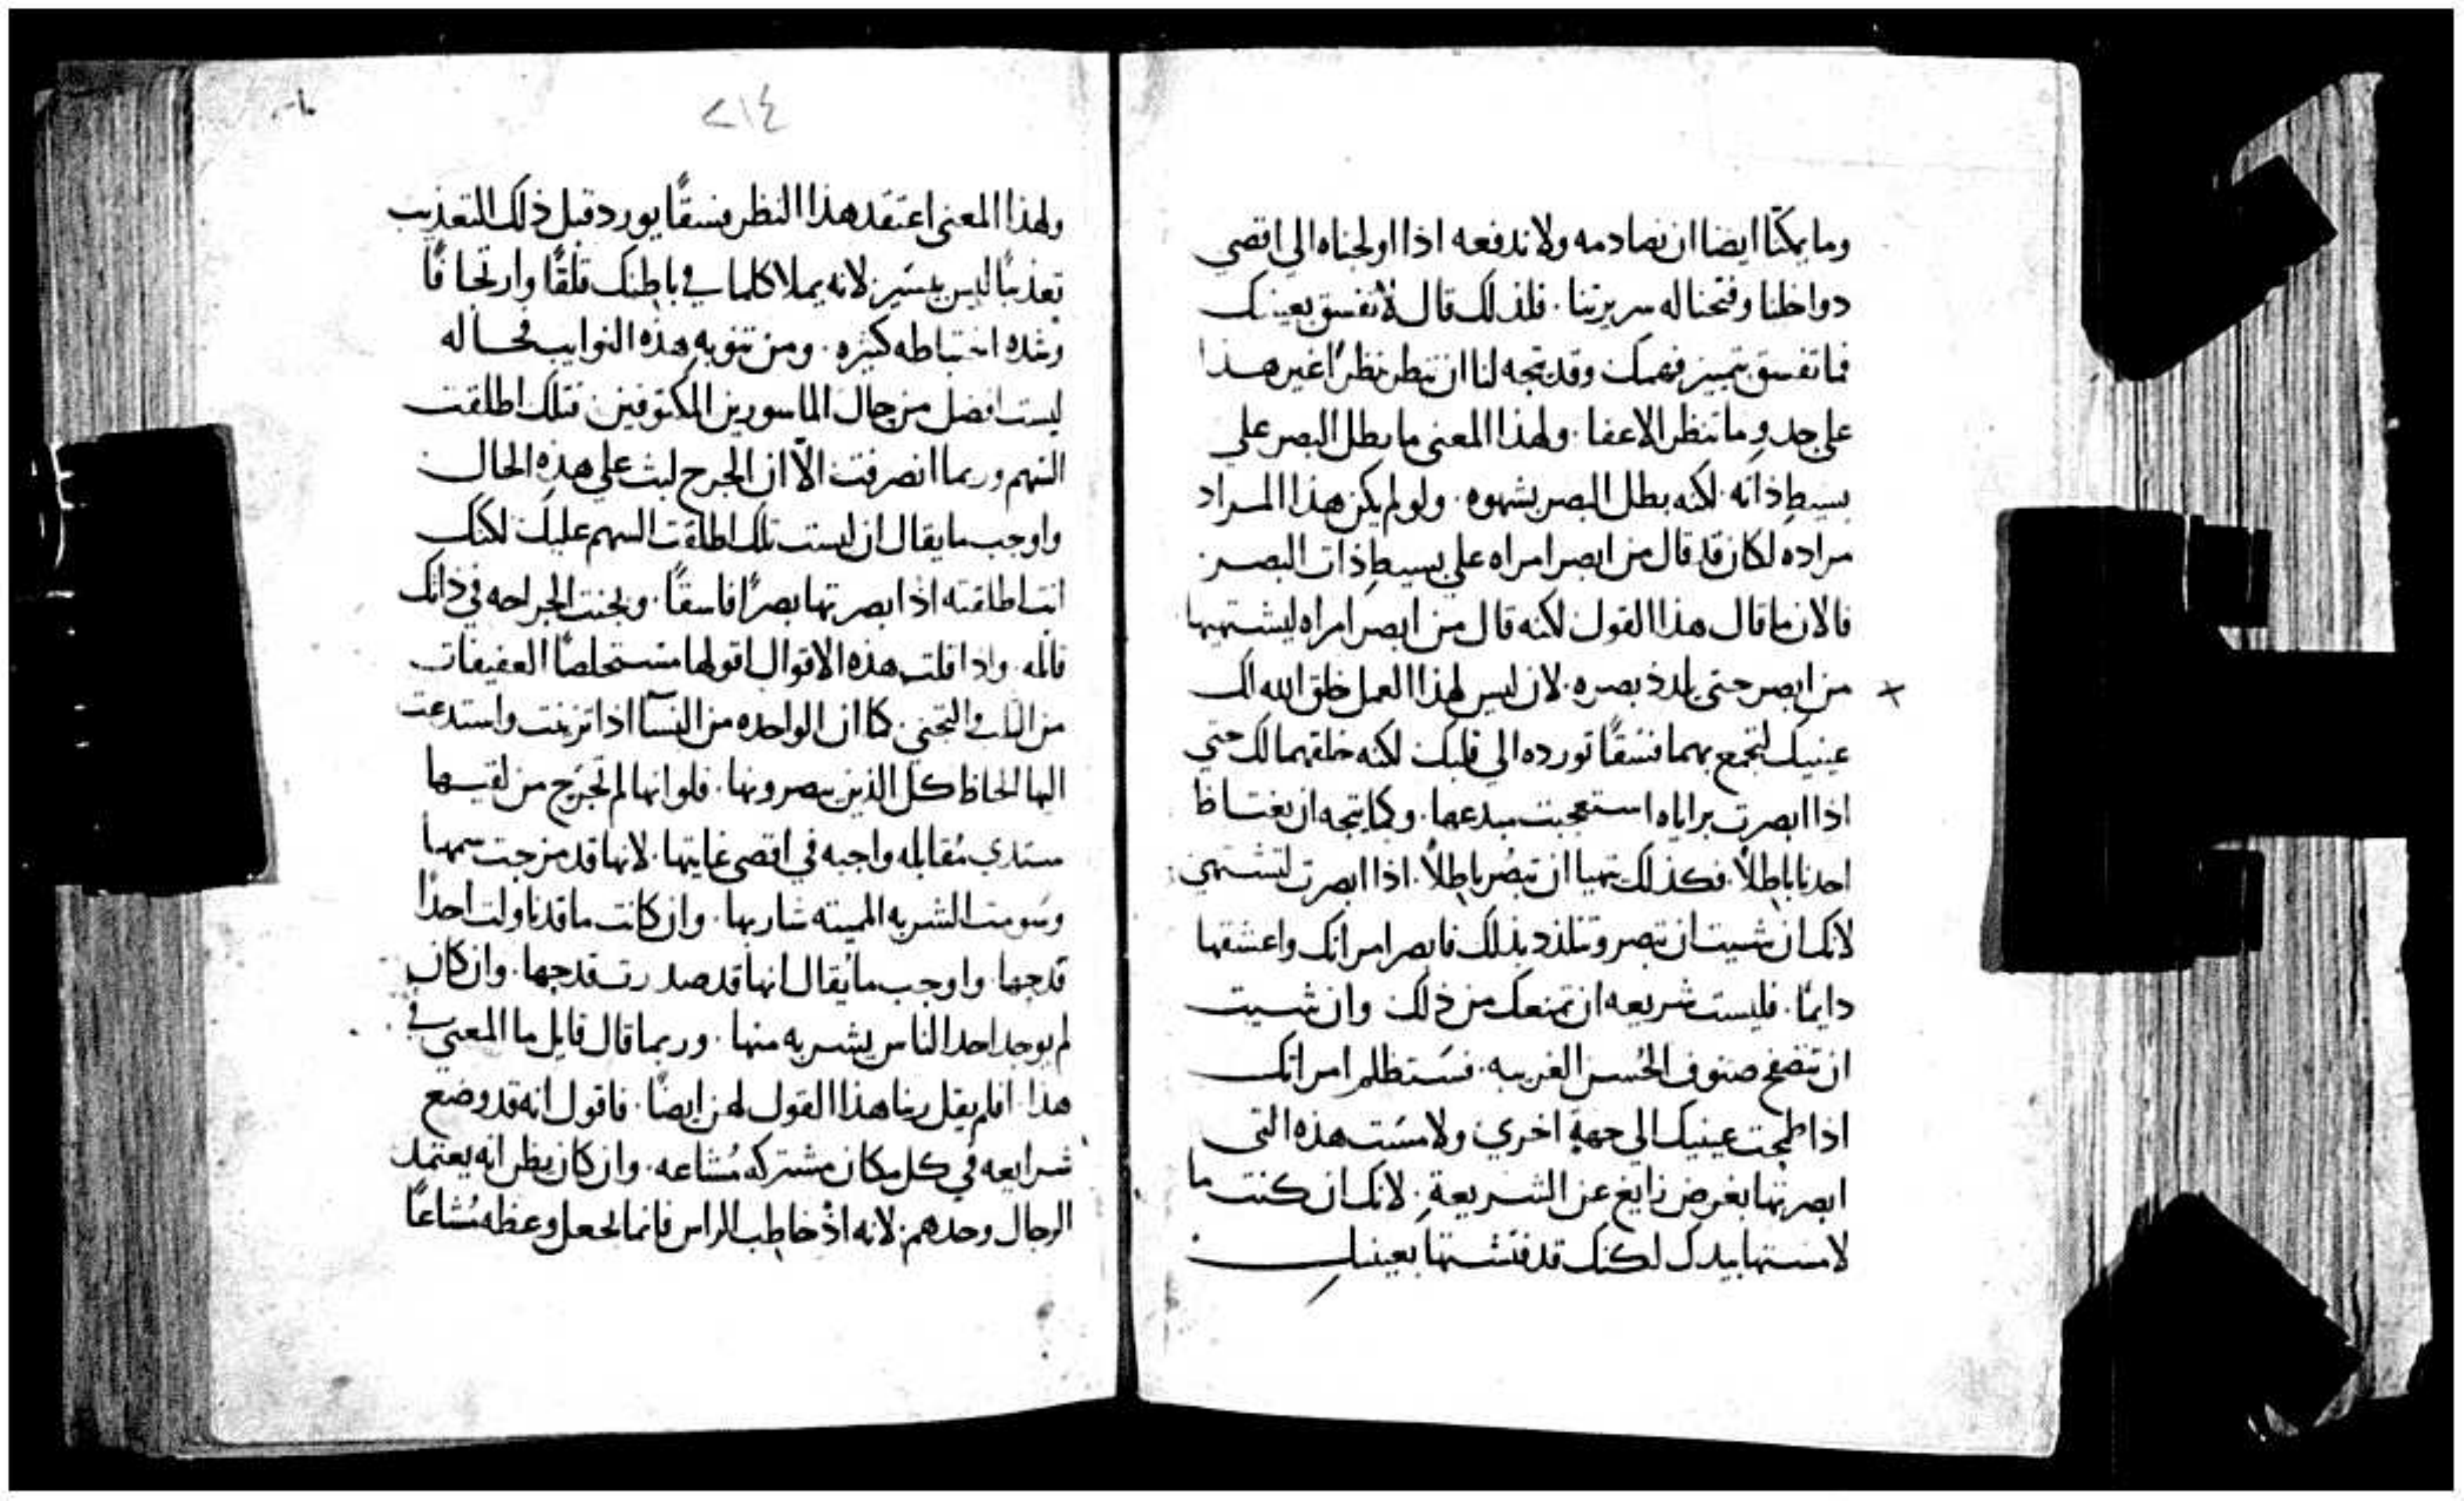 وما يمكننا ايضا ان نصادمه ولا ندفعه اذا اولجناه الي اقصي
دواخلنا وفتحنا له سريرتنا . فلذلك قال لا تفسق بعينك
فما تفسق بتمييز فهمك وقد يتجه لنا ان ننظر نظرًا غير هذا
علي حدو ما تنظر الاعفا . ولهذا المعني ما بطل البصر علي
بسيط ذاته لكنه بطل البصر بشهوه . ولو لم يكن هذا المراد
مراده لكان قد قال من ابصر امراه علي بسيط ذات البصر .
فالان ما قال هذا القول لكنه قال من ابصر امراه ليشتهيها
من ابصر حتي يلذذ بصره . لان ليس لهذا العمل خلق الله لك
عينيك لتجمع بهما فسقًا تورده الي قلبك لكنه خلقهما لك حتي
اذا ابصرت براياه استعجبت مبدعها . وكما يتجه ان يغتاظ
احدنا باطلًا . فكذلك يتهيا ان تبصُر باطلًا . اذا ابصرت لتشتهي
لانك ان شيت ان تبصر وتتلذذ بذلك فابصر امراتك واعشقها
دايمًا . فليست شريعه ان تمنعك من ذلك وان شيت
ان تتصفح صنوف الحُسن الغريبه . فستظلم امراتك
اذا طمحت عينيك الي جهةٍ اخري ولامسَت هذه التي
ابصرتها بغرض زايغ عن الشريعةِ . لانك ان كنت ما
لامستها بيدك لكنك قد فتشتها بعينيك .
٢١٤
ولهذا المعني اعتقد هذا النظر فسقًا يورد قبل ذلك التعذيب
تعذيبًا ليس بيسَير لانه يملا كلما في باطنك قلقًا وارتجافًا
وشده اختباطه كثيره . ومن تنوبه هذه النوايب فحاله
ليست افضل من حال الماسورين المكتوفين فتلك اطلقت
السهم وربما انصرفت الّا ان الجرح لبث علي هذه الحال
واوجب ما يقال ان ليست تلك اطلقت السهم عليك لكنك
انت اطلقته اذا ابصرتها بصرًا فاسقًا . وبحنت الجراحه في ذاتك
قاتله . واذا قلت هذه الاقوال اقولها مستخلصًا العفيفات
من والتجني . كما ان الواحده من النسآ اذا تزينت واستدعت
اليها الحاظ كل الذين يبصرونها . فلو انها لم تجرَح من لقيها
ستدي مُقابله واجبه في اقصي غايتها . لانها قد مزجت سمها
وسَومت الشربه المميته شاربها . وان كانت ما قد ناولت احدًا
قدحها . واوجب ما يُقال انها قد صدرت قدحها . وان كان
لم يوجد احد الناس يشربه منها . وربما قال قايل ما المعني في
هذا افلم يقل ربنا هذا القول لهن ايضًا . فاقول انه قد وضع
شرايعه في كل مكان مشتركه مُشاعه . وان كان يظن انه يعتمد
الرجال وحدهم . لانه اذْ خاطب الراس فانما يجعل وعظه مُشاعًا